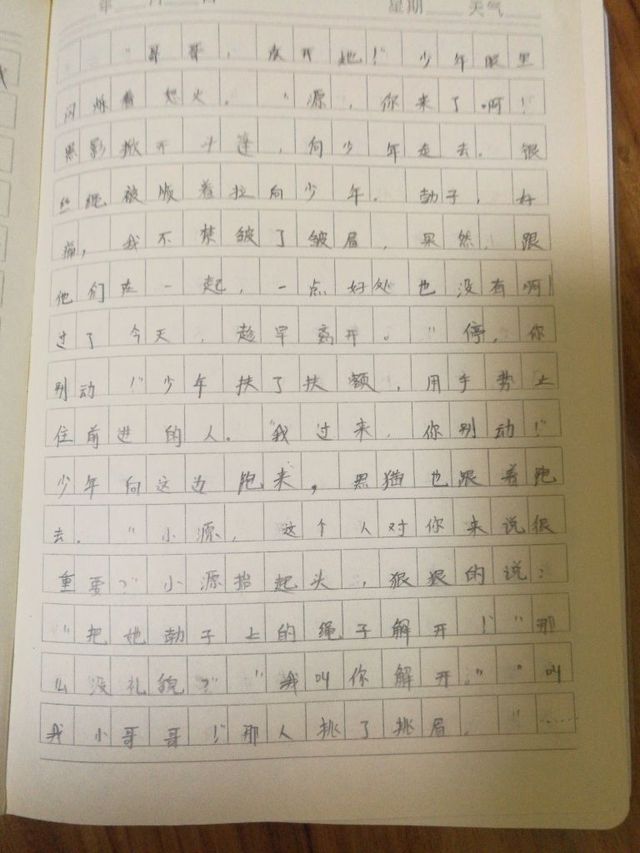 年 月 日 星期 天气
"哥哥,放开她!"少年眼里
闪烁着怒火。"源,你来了啊!
黑影掀开斗篷,向少年走去。银
红绳被顺着拉向少年。勃子,好
痛,我不禁皱了皱眉,果然,跟
他们在一起,一点好处也没有啊!
过了今天,趁早离开。"停,你
别动!"少年扶了扶额,用手势止
住前进的人。"我过来,你别动!"
少年向这边跑来,黑猫也跟着跑
去。"小源,这个人对你来说很
重要?"小源抬起头,狠狠的说:
"把她勃子上的绳子解开!""那
么没礼貌?""我叫你解开。""叫
我小哥哥!"那人挑了挑眉。"……